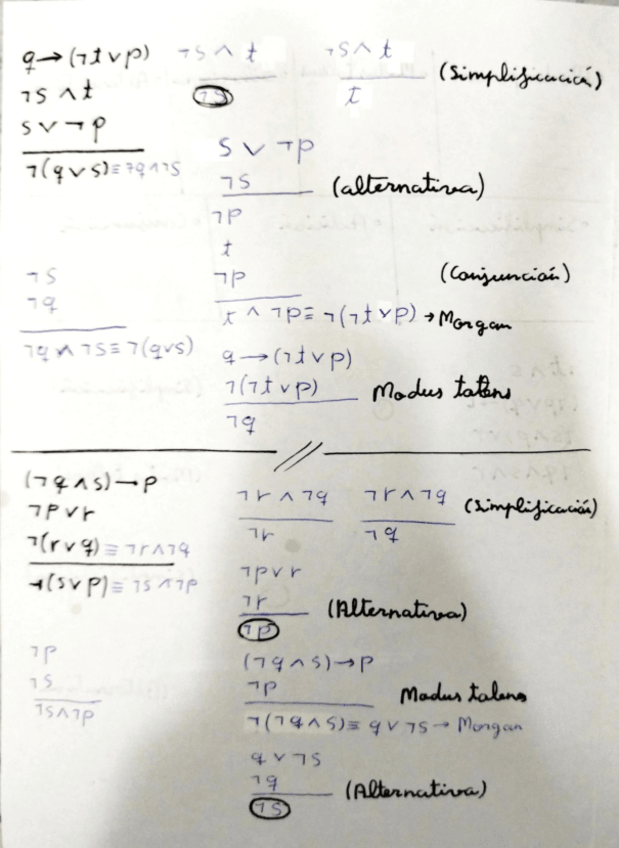 q → (¬t ∨ p)
¬s ∧ t
s ∨ ¬p
¬(q ∨ s) ≡ ¬q ∧ ¬s
¬s ∧ t
¬s
¬s ∧ t
t
(Simplificación)
s ∨ ¬p
¬s
(alternativa)
¬p
t
¬p
(Conjunción)
t ∧ ¬p ≡ ¬(¬t ∨ p) → Morgan
¬s
¬q
¬q ∧ ¬s ≡ ¬(q ∨ s)
q → (¬t ∨ p)
¬(¬t ∨ p)
Modus talens
¬q
(¬q ∧ s) → p
¬p ∨ r
¬(r ∨ q) ≡ ¬r ∧ ¬q
¬(s ∨ p) ≡ ¬s ∧ ¬p
¬r ∧ ¬q
¬r
¬r ∧ ¬q
¬q
(Simplificación)
¬p ∨ r
¬r
(Alternativa)
¬p
¬p
¬s
¬s ∧ ¬p
(¬q ∧ s) → p
¬p
Modus talens
¬(¬q ∧ s) ≡ q ∨ ¬s → Morgan
q ∨ ¬s
¬q
(Alternativa)
¬s